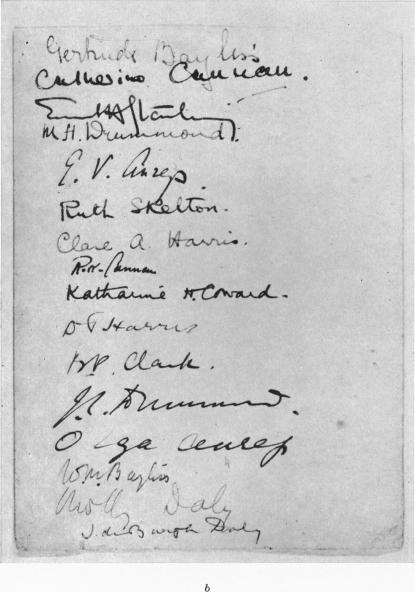 Gertrude Bayliss
Catherine Cannan.
Ernest H Starling
M H. Drummond.
G. V. Anrep.
Ruth Skelton.
Clare A. Harris.
R.K. Cannan
Katharine H. Coward.
D T Harris
Clark.
J.C. Drummond.
Olga Anrep
W.M. Bayliss
Molly Daly
I. de Burgh Daly
b